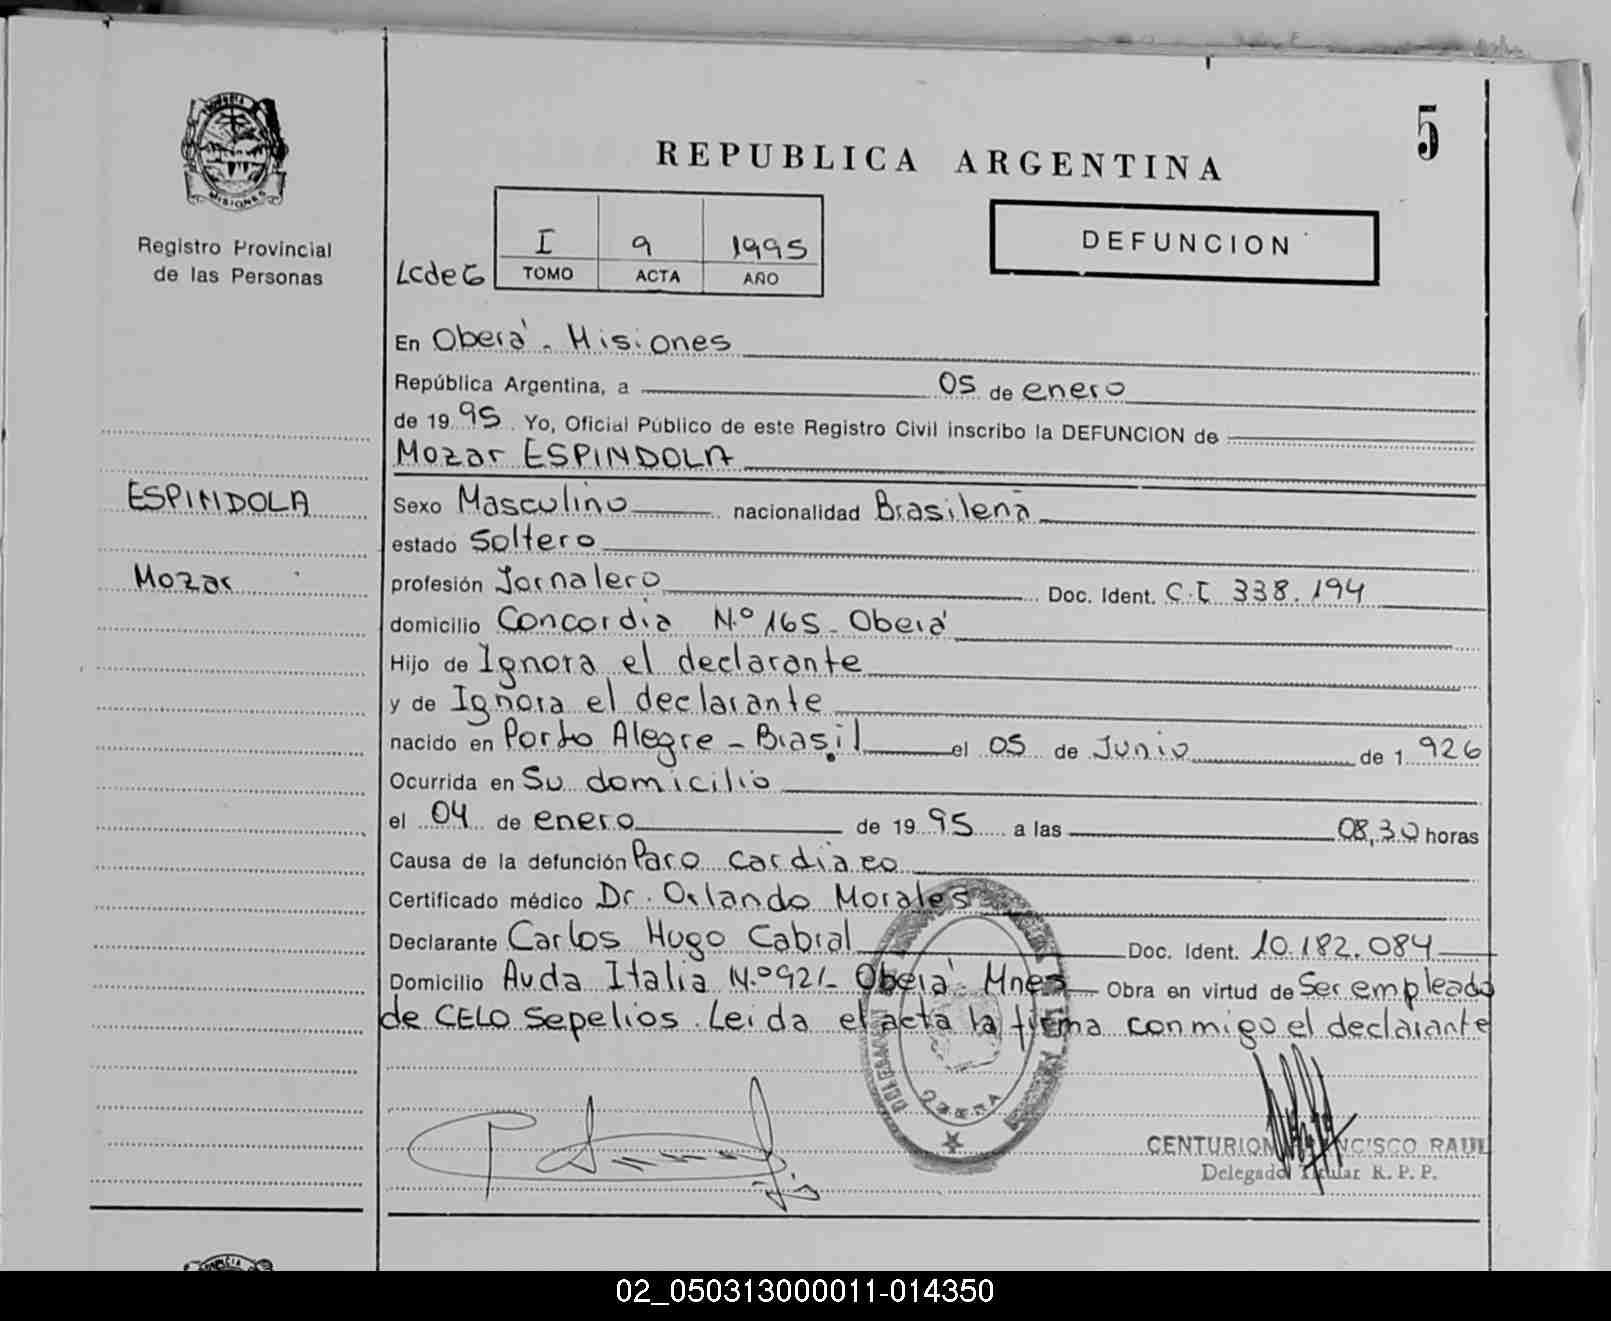 5
REPUBLICA ARGENTINA
MISIONES
Registro Provincial
de las Personas
I 9 1995
TOMO ACTA AÑO
DEFUNCION
En Oberá - Misiones
República Argentina, a 05 de enero
de 1995 Yo, Oficial Público de este Registro Civil inscribo la DEFUNCION de
Mozar ESPINDOLA
ESPINDOLA
Mozar
Sexo Masculino nacionalidad Brasileña
estado Soltero
profesión Jornalero Doc. Ident. C.I 338.194
domicilio Concordia N.º 165 - Oberá
Hijo de Ignora el declarante
y de Ignora el declarante
nacido en Porto Alegre - Brasil el 05 de Junio de 1926
Ocurrida en Su domicilio
el 04 de enero de 1995 a las 08,30 horas
Causa de la defunción Paro cardiaco
Certificado médico Dr. Orlando Morales
Declarante Carlos Hugo Cabral Doc. Ident. 10.182.084
Domicilio Avda Italia N.º 921 - Oberá - Mnes Obra en virtud de Ser empleado
de CELO Sepelios. Leida el acta la firma conmigo el declarante
OBERA
CENTURION RAUL
Delegado Titular R. P. P.
02_050313000011-014350